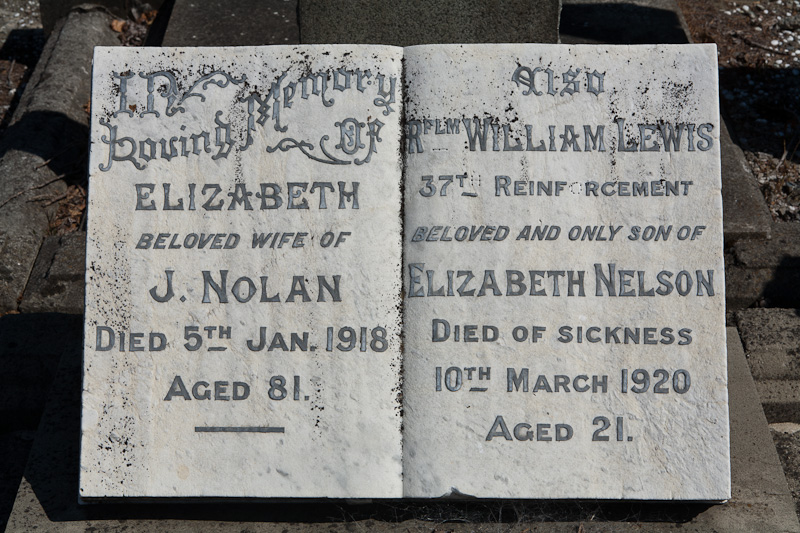 In
Memory
Loving Of
ELIZABETH
BELOVED WIFE OF
J. NOLAN
DIED 5TH JAN. 1918
AGED 81.
Also
RFLM WILLIAM LEWIS
37T REINFORCEMENT
BELOVED AND ONLY SON OF
ELIZABETH NELSON
DIED OF SICKNESS
10TH MARCH 1920
AGED 21.